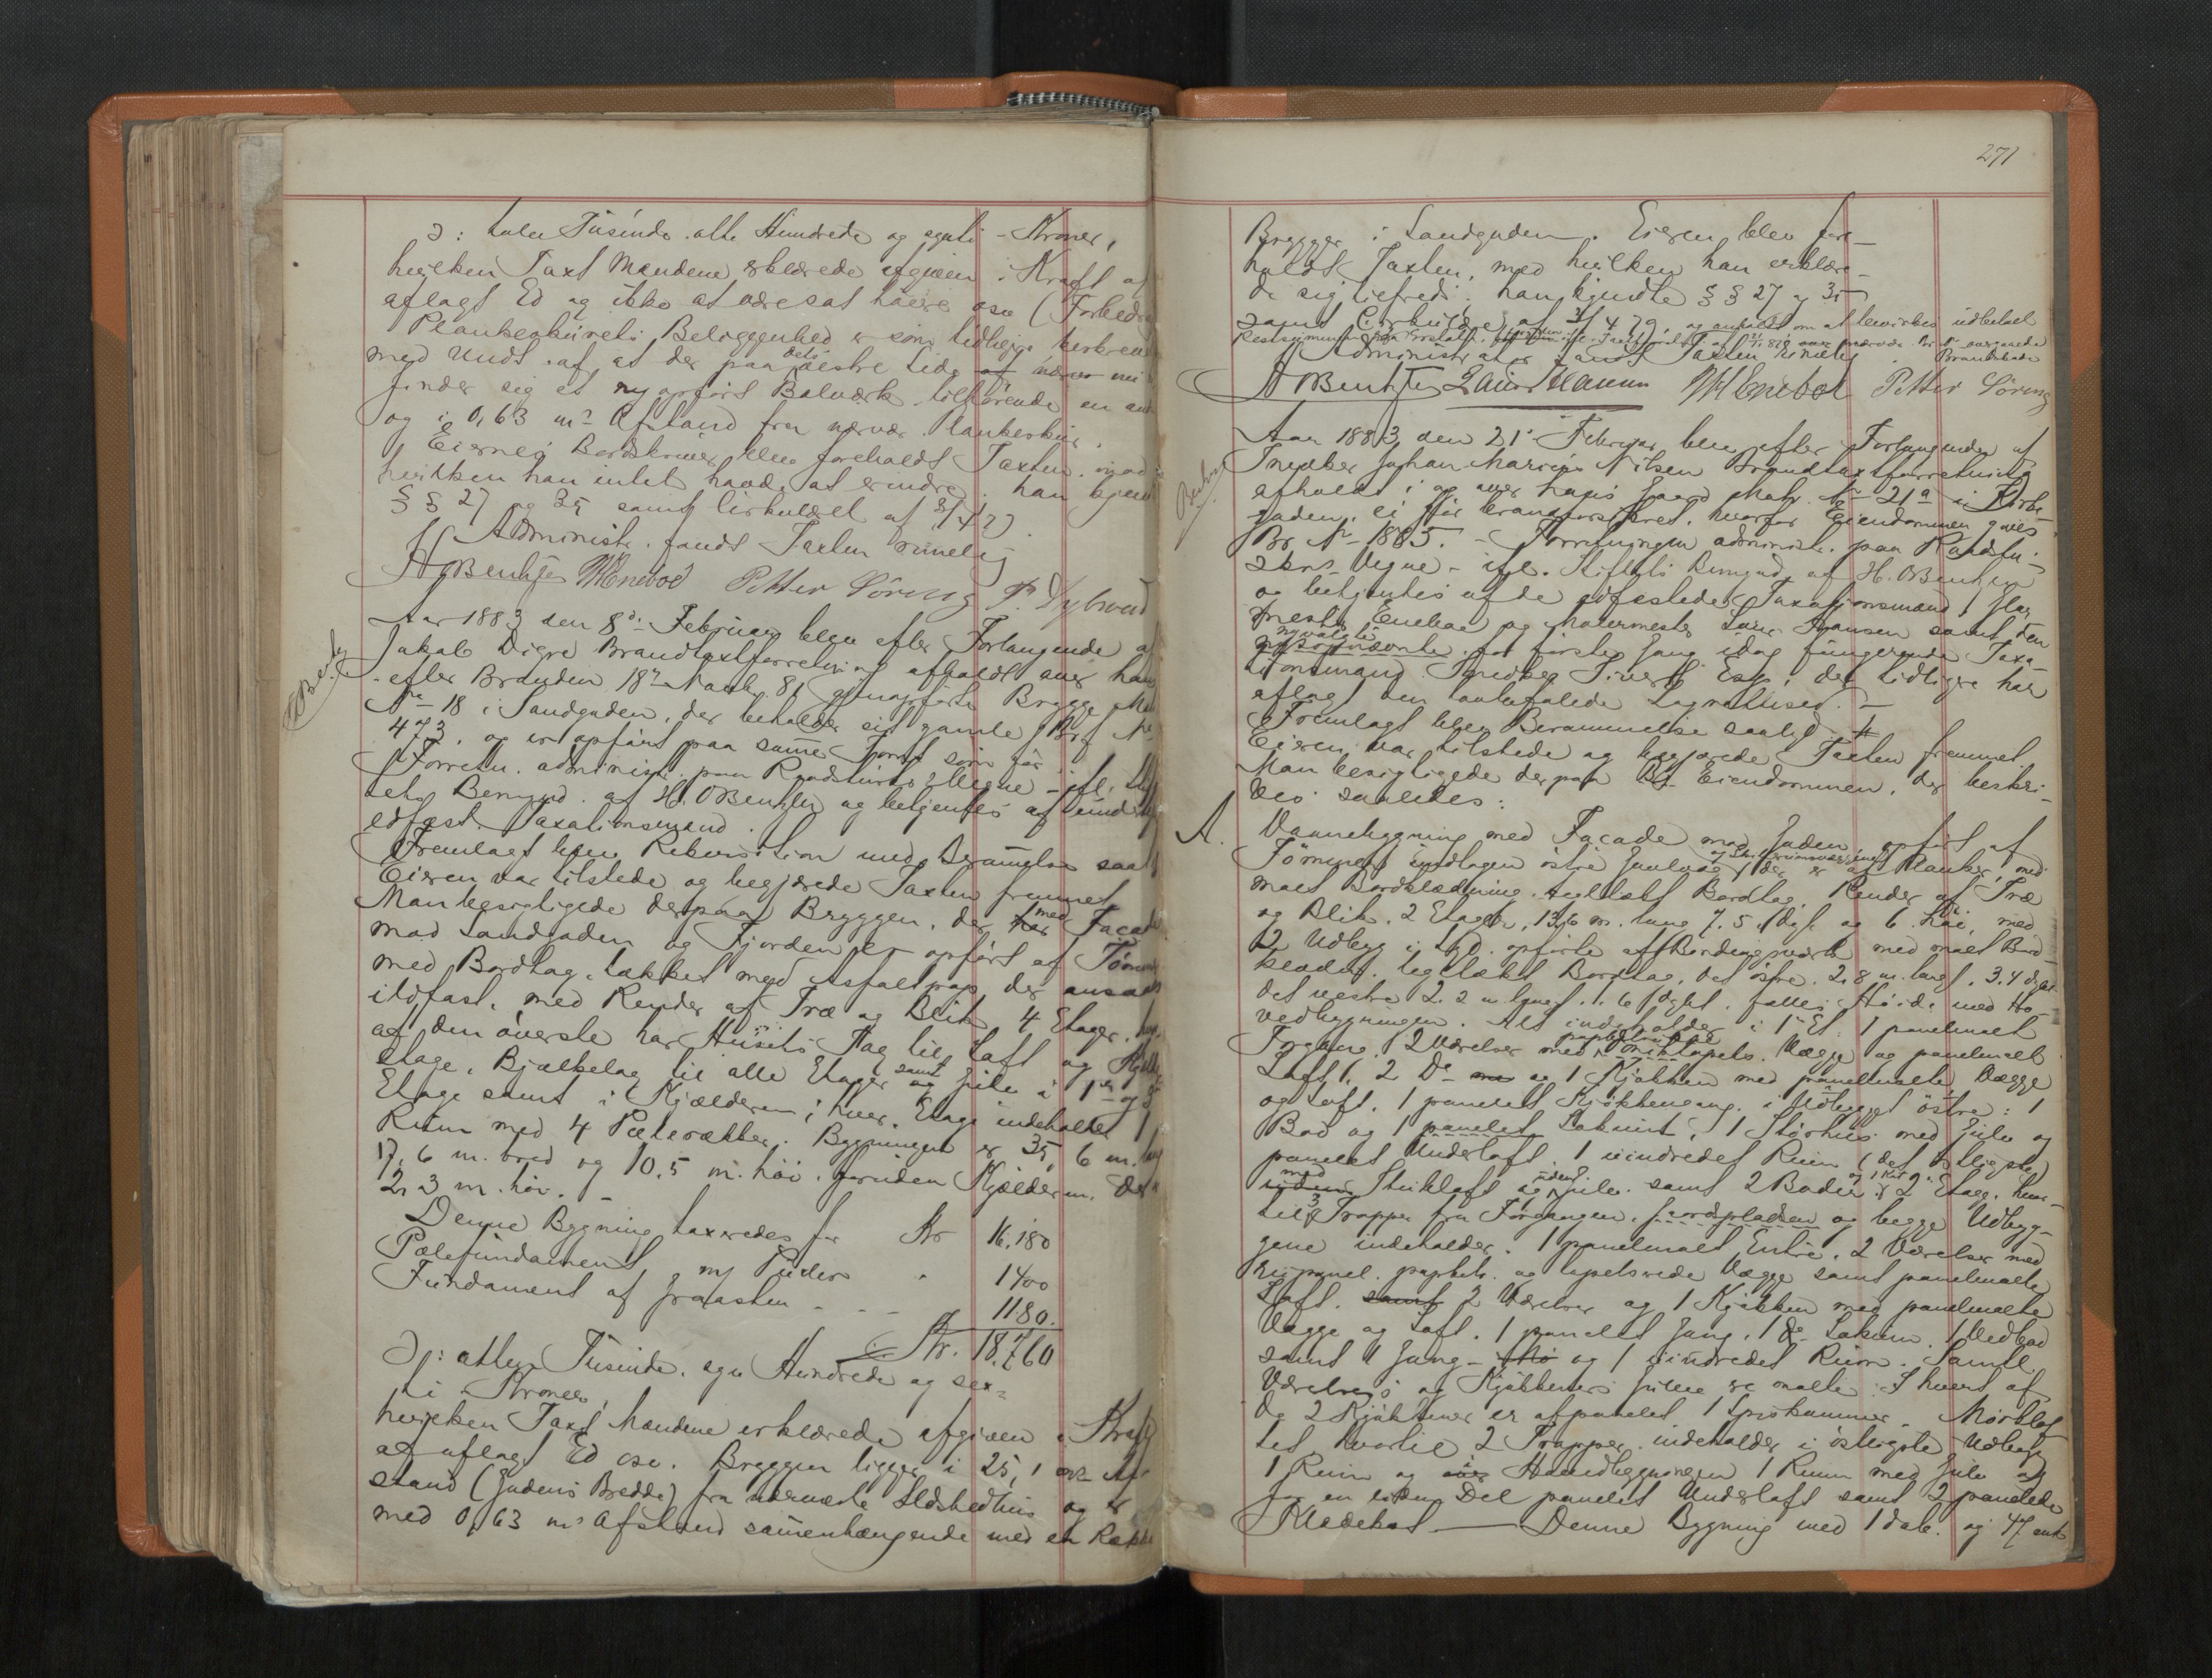 ɔ: tolv Tusinde otte Hundrede og sytti - Kroner,
hvilken Taxt Mændene erklærede afgiven i Kraft af
aflagt Ed og ikke at være sat høiere osv (Forbedr
Plankeskurets Beliggenhed er som tidligere beskreven
med Undt. af, at der paa dets vestre Side
finder sig et ny opført Bolværk tilhørende en
og i 0,63 m? Afstand fra nærvær. Plankeskur.
Eiernes Bordskriver blev foreholdt Taxten, mod
hvilken han intet havde at erindre. han kjendte
§ § 27 og 35 samt Cirkulæret af 3/4 79.
Administr. fandt Taxten rimelig
H OBentzen MEnebod Petter Søreng P. Dybvad
H OBentzen
Aar 1883 den 8de Februar blev efter Forlangende af
Jakob Digre Brandtaxtforretning afholdt over han
efter Branden 18de 81 gjenopførte Brygge Mat
No 18 i Sandgaden, der beholder sit gamle Br No
473, og er opført paa samme Tomt som før
Forretn. administr. paa Raadstuens Vegne - ifl. Stif
tets Bemynd. af H. OBentzen og betjentes af
edfæst. Taxationsmænd.
Fremlagt blev Rekvisition med Berammelse saal
Eieren var tilstede og begjærede Taxten fremmet
Man besigtigede derpaa Bryggen, der med Facade
mod Sandgaden og Fjorden er opført af Tømmer
med Bordtag, tækket med Asfaltpap der ansaaes
ildfast, med Render af Træ og Blik, 4 Etager, hvor
af den øverste har Husets Tag til Loft og Kjelder
etage, Bjælkelag til alle Etager samt Gulv i 1ste og 2
Etage samt i Kjælderen; hver Etage indeholder 1
Rum med 4 Pælerækker. Bygningen er 35,6 m. lang
17,6 m. bred og 10,5 m. høi foruden Kjælderen, der er
2,3 m. høi. -
Denne Bygning taxeredes for Kr 16,180
Pælefundament m/ Puder " 1400
Fundament af Graasten - - - 1180.
Kr. 18,760
ɔ: atten Tusinde, syv Hundrede og sex-
ti - Kroner,
hvilken Taxt Mændene erklærede afgiven i Kraft
af aflagt Ed osv. Bryggen ligger i 25,1 m Af-
stand (Gadens Bredde) fra nærmeste Ildstedhus og er
med 0,63 m? Afstand sammenhængende med en Række
271
Brygger i Sandgaden. Eieren blev fore-
holdt Taxten, med hvilken han erklære-
de sig tilfreds; han kjendte § § 27 og 35
samt Cirkulære af 3/4 79, og anholdt om at bevirkes udbetalt
Administrator fandt Taxten rimelig. Brandkasse
H OBentzen Laur Hansen MEnebod Petter Søreng
Bentzen
Aar 1883 den 21de Februar blev efter Forlangende af
Snedker Johan Marius Nilsen Brandtaxtforretning
afholdt i og over hans Gaard Matr. No 21a i Kirke-
gaden, ei før brandforsikret, hvorfor Eiendommen gaves
Br No 1885. - Forretningen administr. paa Raadstu-
ens Vegne - ifl. Stiftets Bemynd. af H. OBentzen
og betjentes af de edfæstede Taxationsmænd, Glar
mester Enebod og Malermester Laur Hansen samt den
nyvalgte for første Gang idag fungerende Taxa-
tionsmand Snedker Sivert Esp, der tidligere har
aflagt den anbefalede Lagrettesed. -
Fremlagt blev Berammelse saalyd. #
Eieren var tilstede og begjærede Taxten fremmet.
Man besigtigede derpaa Eiendommen, der beskri-
ves saaledes:
A. Vaanebygning med Façade mod Gaden, opført af
Tømmer undtagen østre Gavlvæg, og der er af Planker, med
malt Bordklædning, teglstækt Bordtag, Render af Træ
og Blik, 2 Etager, 13,6 m. lang 7.5. dyb og 6. høi, med
2 Udbyg i Syd. opførte af Bindingsværk med malt Bord
klædn. teglstækt Bordtag, det østre 2,8 m. langt, 3.4 dybt
det vestre 2.2 m langt, 1.6 dybt, fælles Høide med Ho-
vedbygningen. Alt indeholder i 1ste Et: 1 panelmalt
Forgang, 2 Værelser med tapets. Vægge og panelmalt
Loft, 2 Do og 1 Kjøkken med panelmalte Vægge
og Loft, 1 panelet Kjøkkengang, i Udbygget østre: 1
Bod og 1 panelet Lokum, 1 Størhus med Gulv og
panelet Underloft, 1 uindredet Rum (det østligste)
med Stukloft og uden Gulv samt 2 Boder. 2 Etage, hvor-
til 3 Trapper fra Forgangen, Gaardspladsen og begge Udbyg-
gene indeholder: 1 panelmalt Entré, 2 Værelser med
panel. og tapetserede Vægge samt panelmalte
Loft, 2 Værelser og 1 Kjøkken med panelmalte
Vægge og Loft, 1 panelet Gang, 1 do Lokum, 1 Vedbod
samt 1 Gang og 1 uindredet Rum. Samtl.
Værelsers og Kjøkkeners Gulve er malte. I hvert af
de 2 Kjøkkener er afpanelet 1 Spiskammer. Mørkloft
tet, hvortil 2 Trapper, indeholder i østligste Udbyg
1 Rum og i Hovedbygningen 1 Rum med Gulv og
for en liden Del panelet Underloft samt 2 panelede
Klædekot. — Denne Bygning med 1 dob. og 47 enk